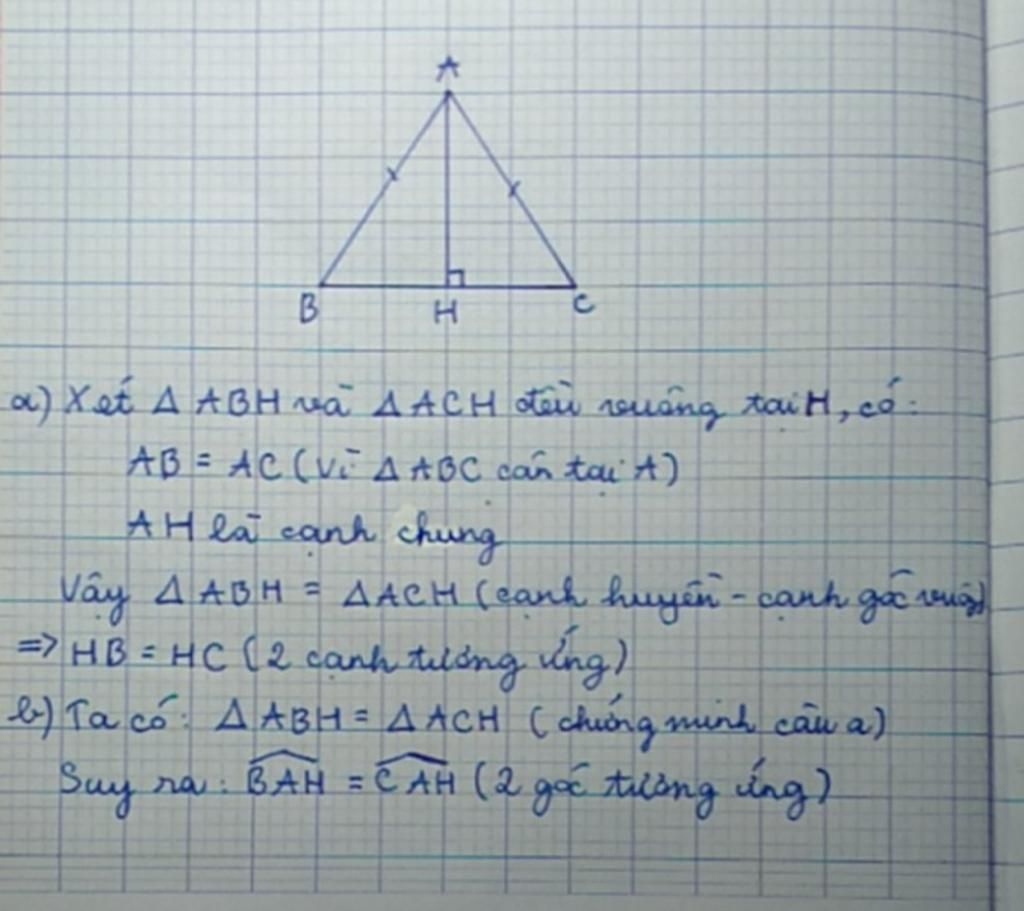 A
B
H
C
a) Xét Δ ABH và Δ ACH đều vuông tại H, có:
AB = AC (Vì Δ ABC cân tại A)
AH là cạnh chung
Vậy Δ ABH = Δ ACH (cạnh huyền - cạnh góc vuông)
=> HB = HC (2 cạnh tương ứng)
b) Ta có: Δ ABH = Δ ACH (chứng minh câu a)
Suy ra: \widehat{BAH} = \widehat{CAH} (2 góc tương ứng)